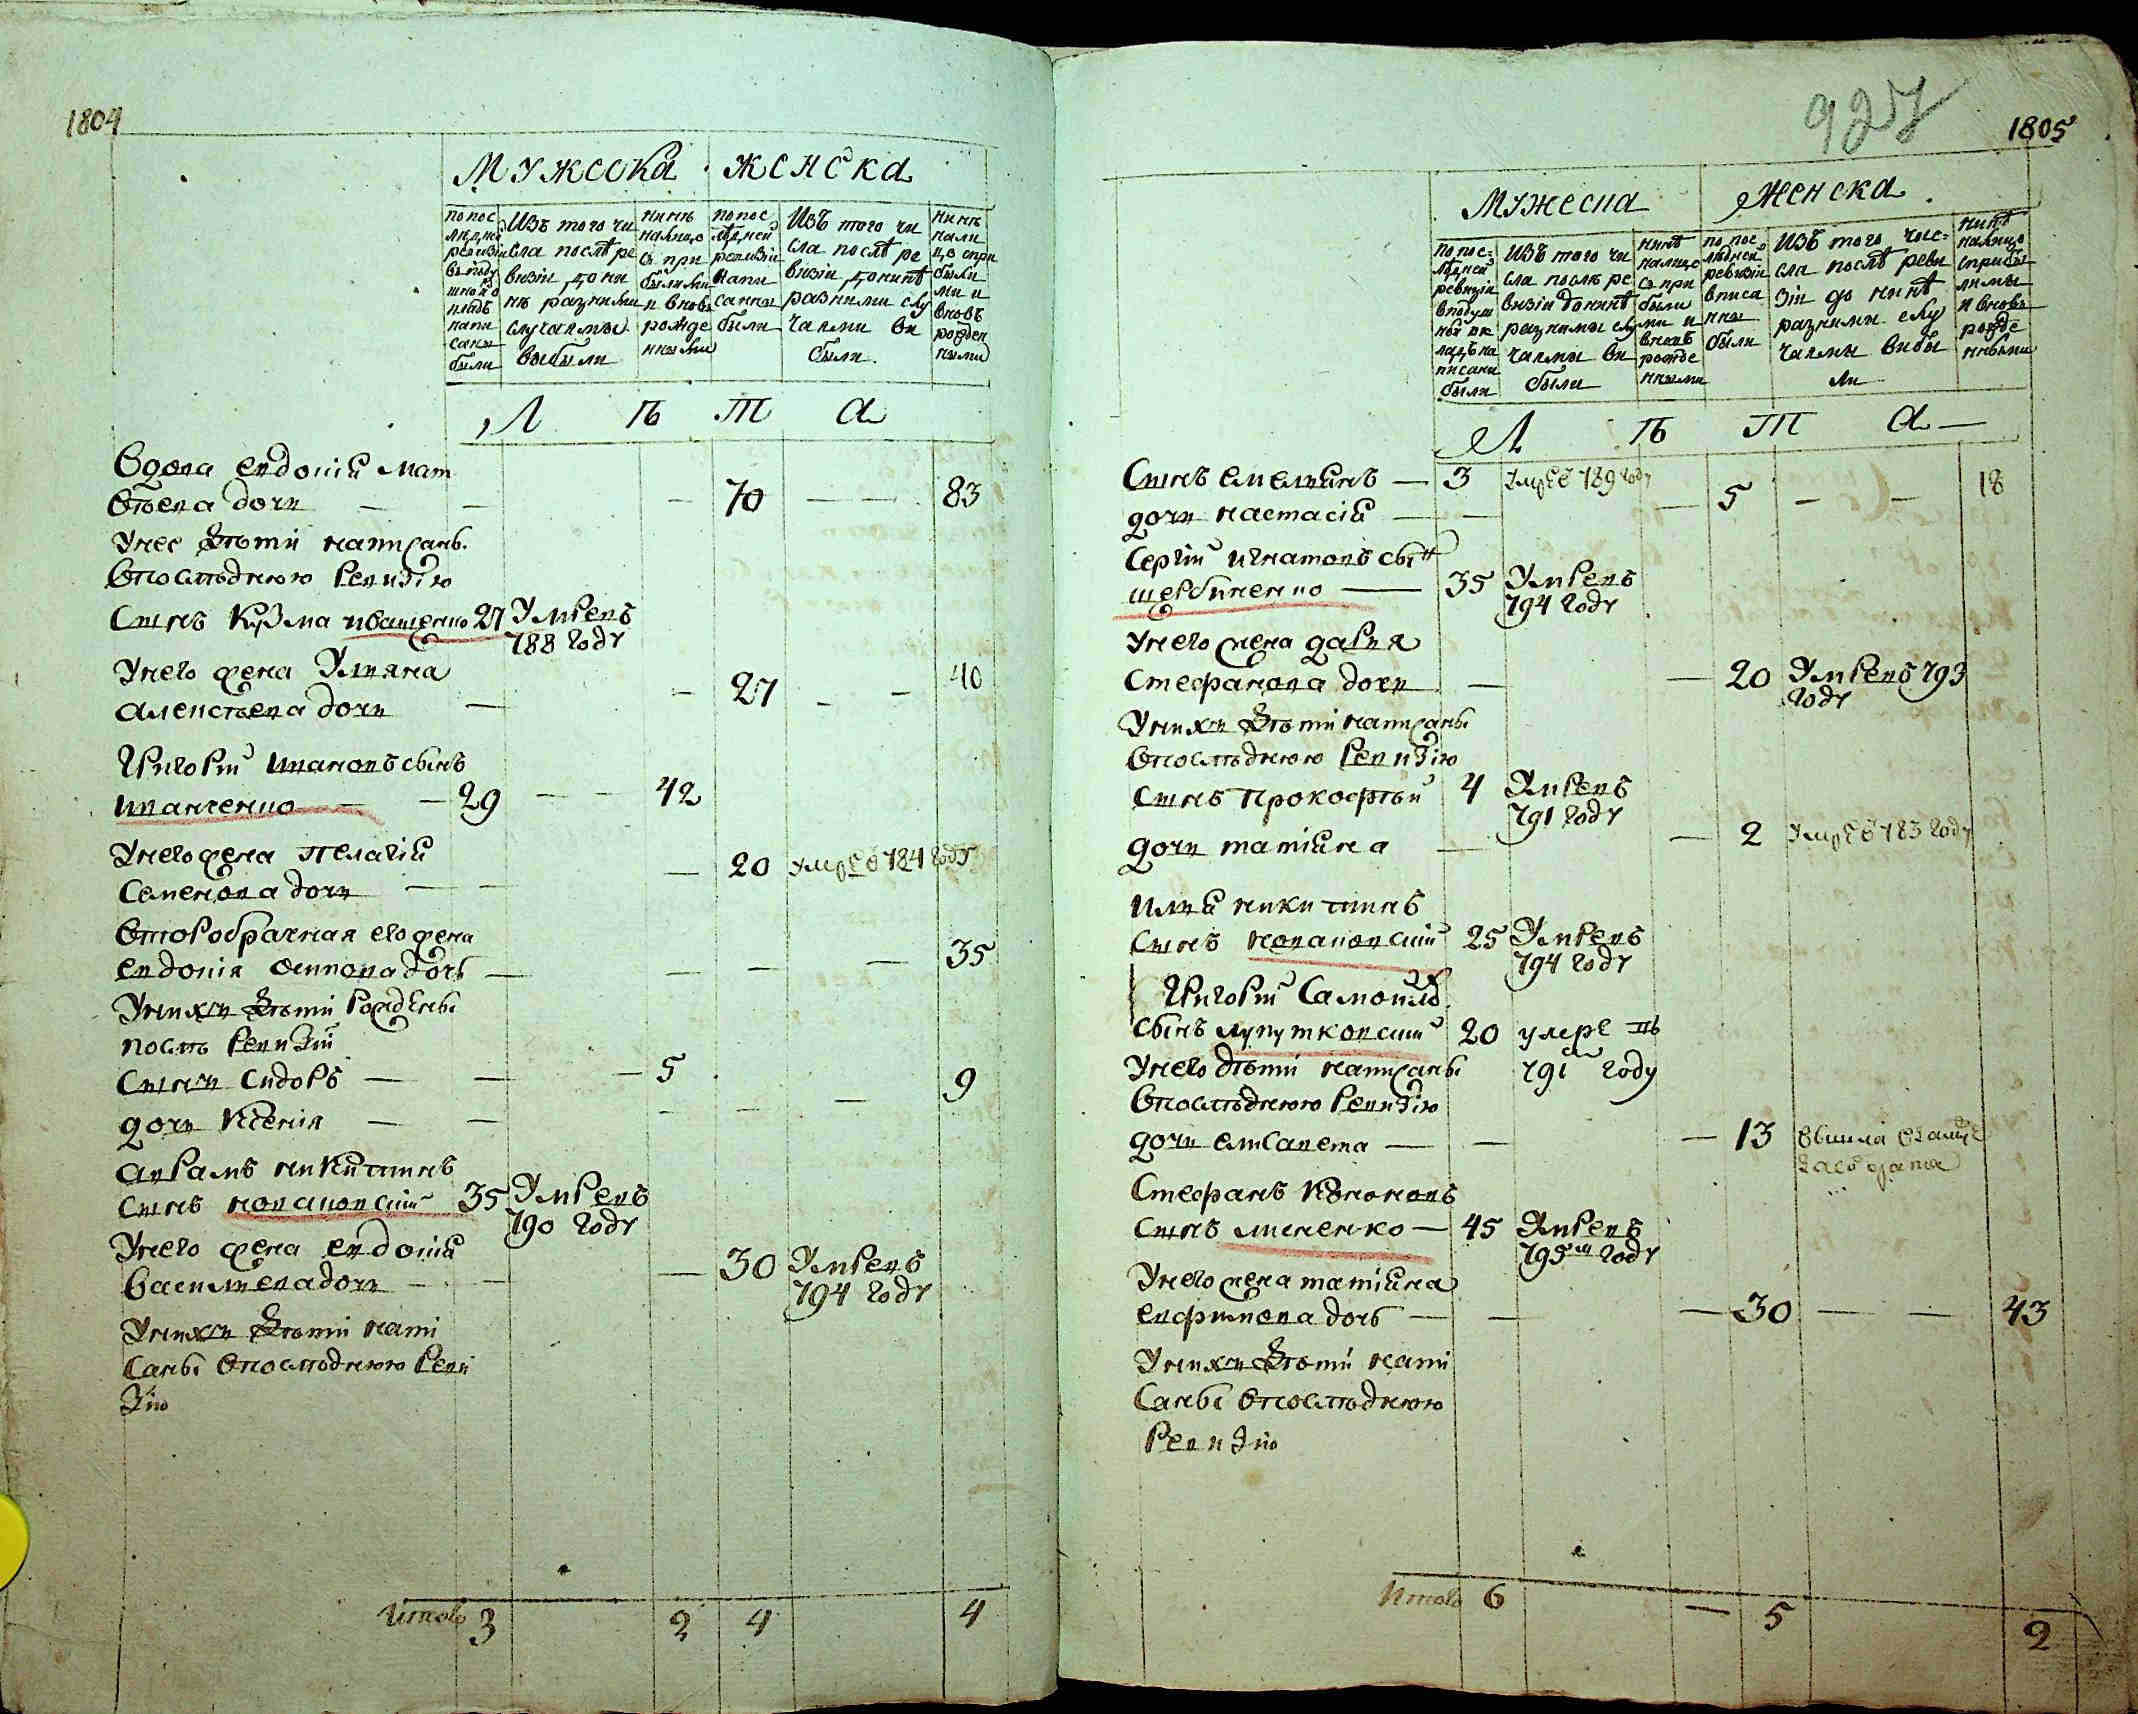 1804
Мужеска женска
по пос
лѣдней
ревизіи
въ поду
шной о
кладъ
напи
саны
были
Изъ того чи
сла послѣ ре
визіи до ны
нѣ разными
случаями
выбыли
нынѣ
налицо
съ при
былыми
и вновь
рожде
нными
по пос
лѣдней
ревизіи
напи
саны
были
Изъ того чи
сла послѣ ре
визіи до нынѣ
разными слу
чаями вы
были
нынѣ
нали
цо с при
были
ми и
вновъ
рожден
ными
Л ѣ т а
Вдова евдокія мат
вѣева дочи — — — 70 — — 83
Унее дѣти написаны
впослѣднюю ревизію
Сынъ Кузма иващенко 27 Умревъ
788 году
Унего жена Уляна
алексѣева дочи — — 27 — — 40
Григорій ивановъ сынъ
иванченко — — 29 — — 42
Унего жена пелагія
Семенова дочи — — — 20 умре в 784 году
Второбрачная его жена
евдокія осипова дочь — — — — 35
Унихъ дѣти рождены
послѣ ревизіи
Сынъ Сидоръ — — — 5
дочи Ксенія — — — — — 9
аврамъ никитинъ
Сынъ коваловскій 35 Умревъ
790 году
Унего жена евдокія
василиева дочи — — — 30 Умревъ
794 году
Унихъ дѣти напи
саны впослѣднюю реви
зію
Итого 3 2 4 4
927
1805
Мужеска Женска
по пос=
лѣдней
ревизіи
в подуш
ной ок
ладъ на
писаны
были
Изъ того чи
сла послѣ ре
визіи до нынѣ
разными слу
чаями вы
были
нынѣ
налицо
съ при
были
ми и
вновъ
рожде
нными
по пос
лѣдней
ревизіи
вписа
нны
были
Изъ того чис=
сла послѣ реви
зіи до нынѣ
разными слу
чаями выбы
ли
нынѣ
налицо
с прибы
лыми
и вновь
рожде
нными
Л ѣ т а —
Сынъ емельянъ — 3 умре в 789 году
дочи настасія — — — 5 — — 18
Сергій игнатовъ сын
щербиненко — 35 Умревъ
794 году
Унего жена дарія
Стефанова дочи — — 20 Умревъ 793
году
Унихъ дѣти написаны
впослѣднюю ревизію
Сынъ Прокофѣй 4 Умревъ
791 году
дочи татіяна — — 2 умре в 783 году
илия никитинъ
Сынъ коваловскій 25 Умревъ
794 году
Григорій Самойло
сынъ лупутковскій 20 умре въ
791 году
Унего дѣти написаны
впослѣднюю ревизію
дочи елисавета — — — 13 вышла в замуже
Стефанъ Кононовъ
Сынъ миненко — 45 Умревъ
795м году
Унего жена татіяна
ефимова дочь — — — 30 — — 43
Унихъ дѣти напи
саны впослѣднюю
ревизію
Итого 6 — 5 2